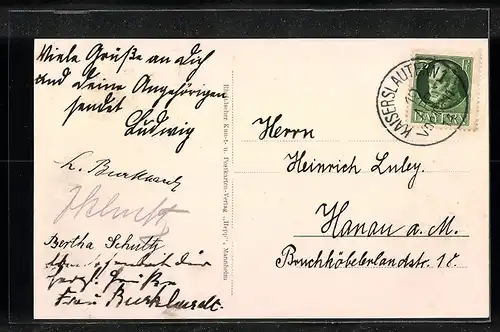 Viele Grüße an Dich
und Deine Angehörigen
sendet
Ludwig
K. Burkhardt
Bertha Schütz
Frau Burkhardt.
Rheinischer Kunst- u. Postkarten-Verlag „Hepp“, Mannheim
KAISERSLAUTERN
BAYERN
Herrn
Heinrich Luley.
Hanau a. M.
Bruchköbelerlandstr. 18.